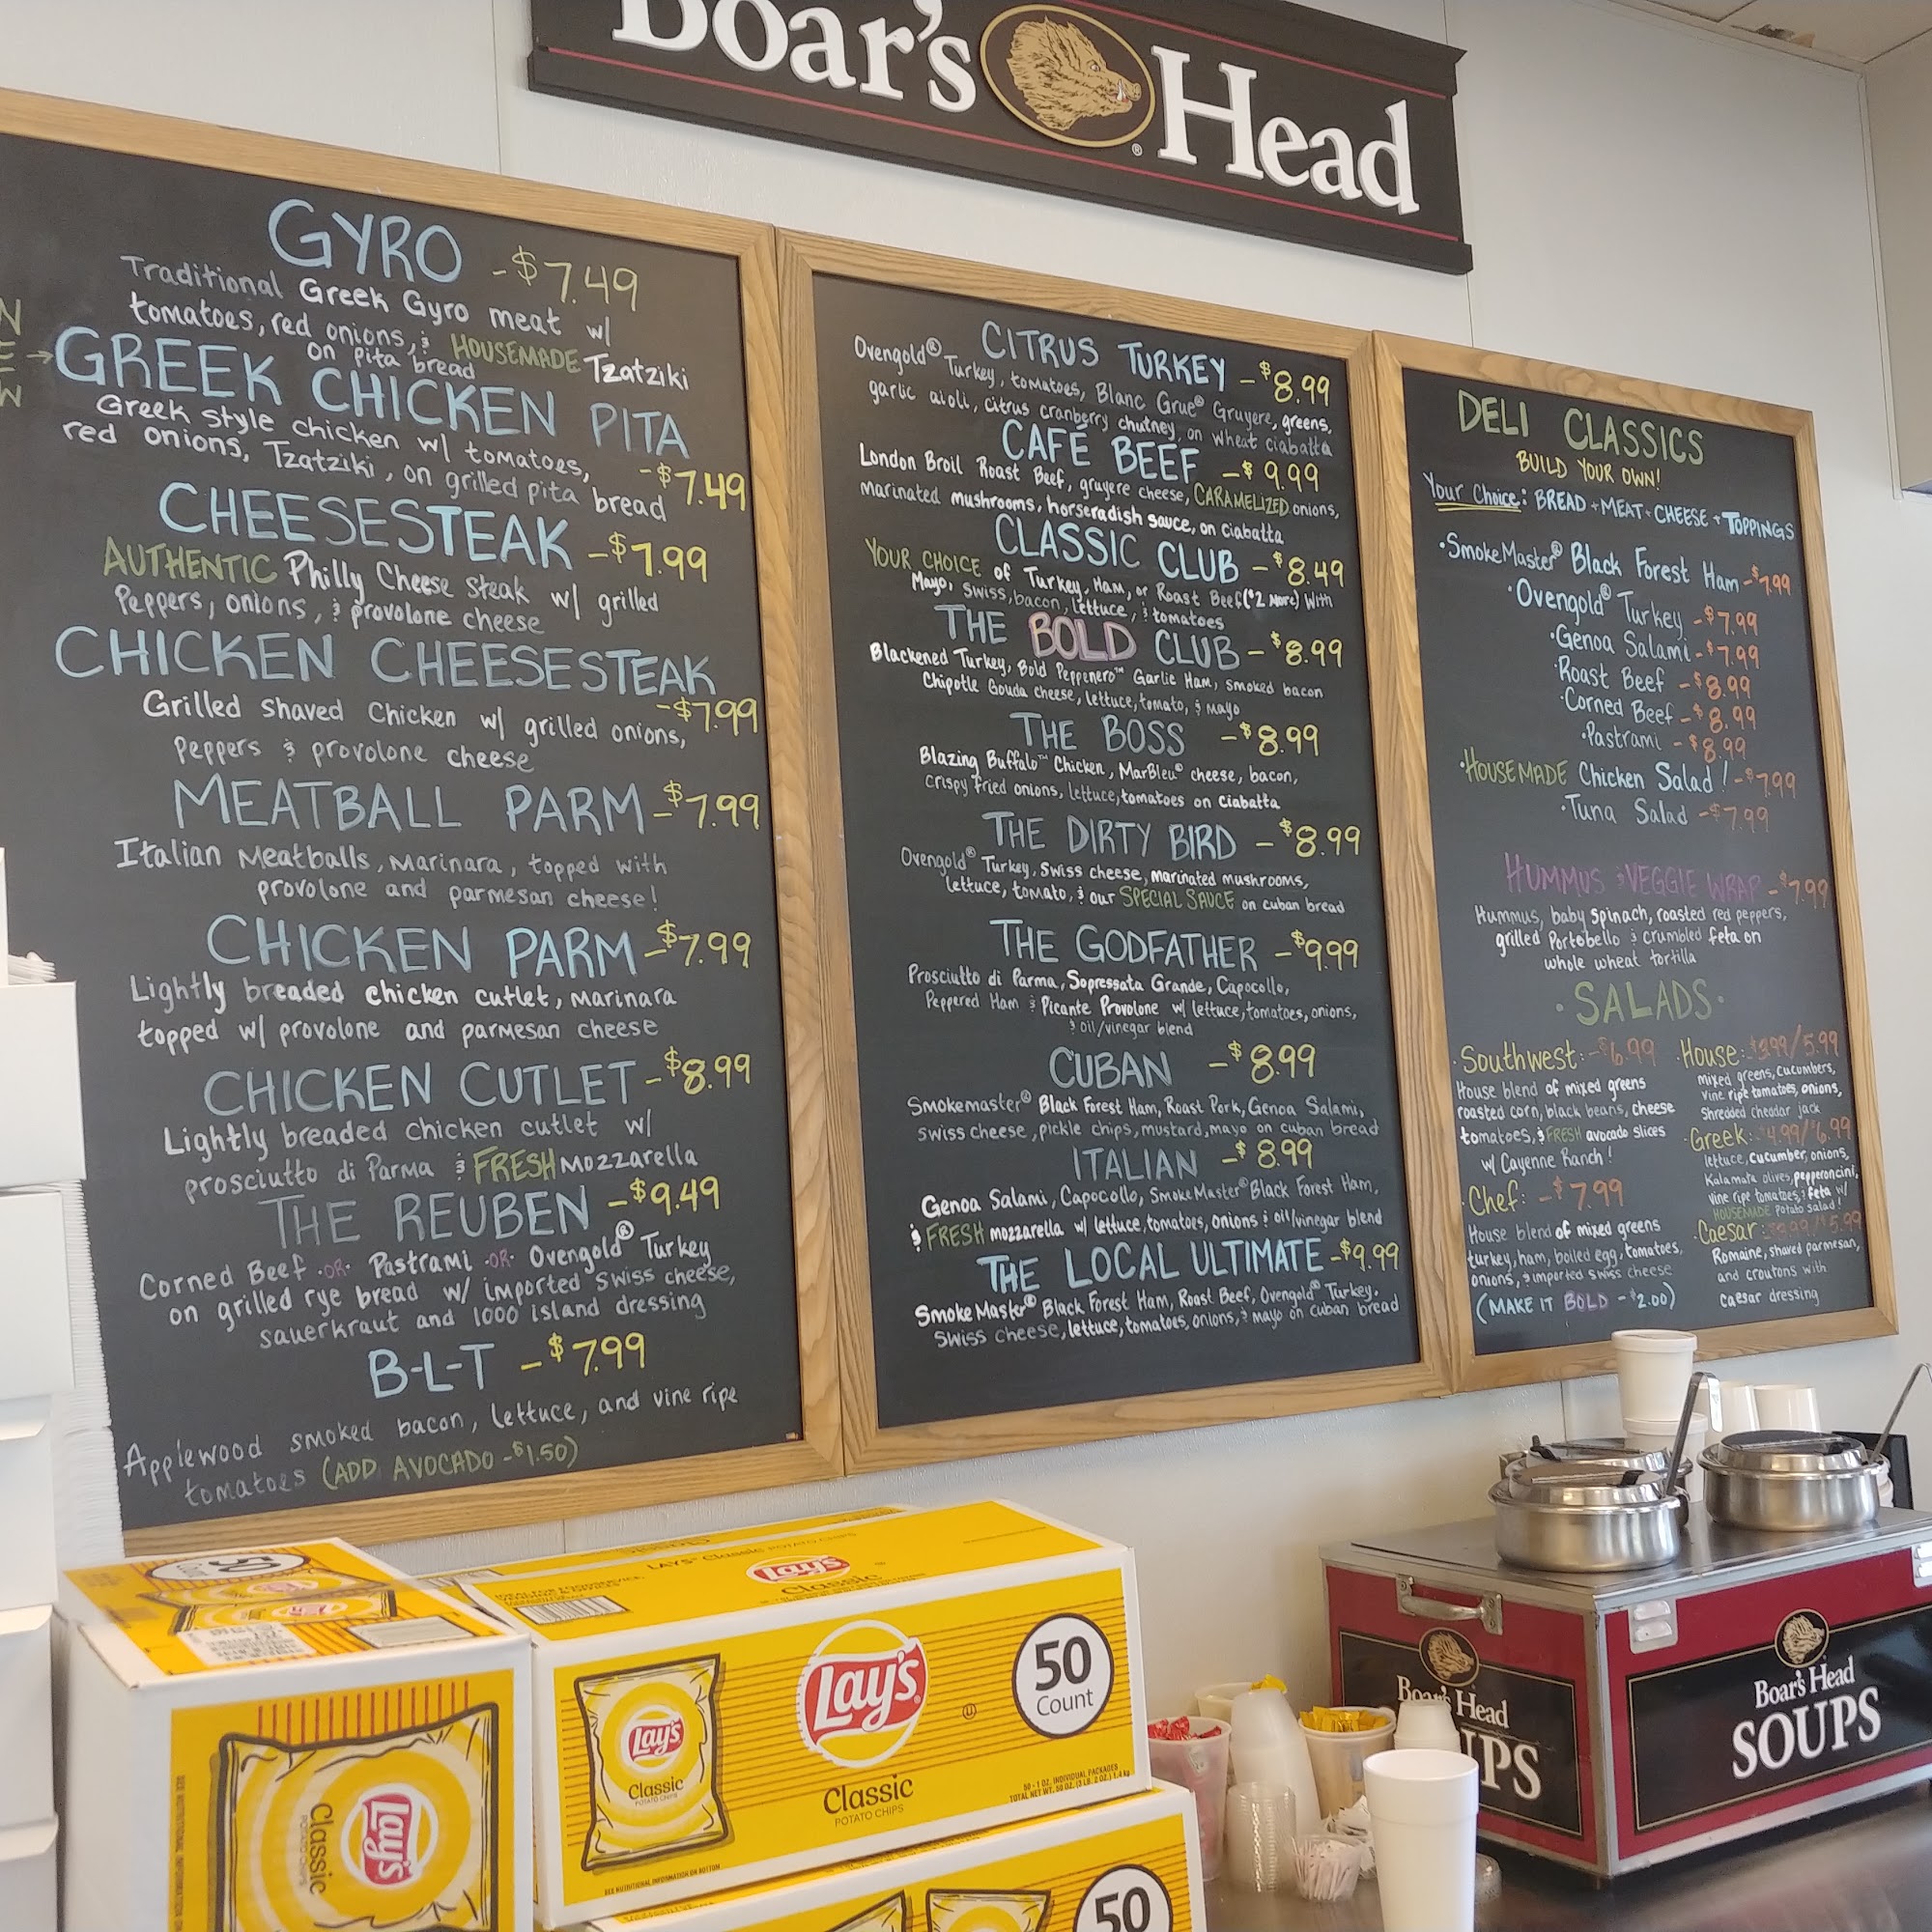 Boar's Head
®
N
E →
W
GYRO - $7.49
Traditional Greek Gyro meat w/
tomatoes, red onions, & HOUSEMADE Tzatziki
on pita bread
GREEK CHICKEN PITA
Greek style chicken w/ tomatoes,
red onions, Tzatziki, on grilled pita bread
-$7.49
CHEESESTEAK -$7.99
AUTHENTIC Philly Cheese Steak w/ grilled
Peppers, onions, & provolone cheese
CHICKEN CHEESESTEAK
-$7.99
Grilled shaved Chicken w/ grilled onions,
Peppers & provolone cheese
MEATBALL PARM -$7.99
Italian Meatballs, Marinara, topped with
provolone and parmesan cheese!
CHICKEN PARM -$7.99
Lightly breaded chicken cutlet, Marinara
topped w/ provolone and parmesan cheese
CHICKEN CUTLET -$8.99
Lightly breaded chicken cutlet w/
prosciutto di Parma & FRESH mozzarella
THE REUBEN -$9.49
Corned Beef ·OR· Pastrami ·OR· Ovengold® Turkey
on grilled rye bread w/ imported Swiss cheese,
sauerkraut and 1000 island dressing
B-L-T -$7.99
Applewood smoked bacon, lettuce, and vine ripe
tomatoes (ADD AVOCADO -$1.50)
CITRUS TURKEY -$8.99
Ovengold® Turkey, tomatoes, Blanc Grue® Gruyere, greens,
garlic aioli, citrus cranberry chutney, on wheat ciabatta
CAFÉ BEEF -$9.99
London Broil Roast Beef, gruyere cheese, CARAMELIZED onions,
marinated mushrooms, horseradish sauce, on ciabatta
CLASSIC CLUB -$8.49
YOUR CHOICE of Turkey, Ham, or Roast Beef ($2 More) With
Mayo, swiss, bacon, lettuce, & tomatoes
THE BOLD CLUB -$8.99
Blackened Turkey, Bold Peppenero™ Garlic Ham, smoked bacon
Chipotle Gouda cheese, lettuce, tomato, & mayo
THE BOSS -$8.99
Blazing Buffalo™ Chicken, MarBleu® cheese, bacon,
crispy fried onions, lettuce, tomatoes on Ciabatta
THE DIRTY BIRD -$8.99
Ovengold® Turkey, Swiss cheese, marinated mushrooms,
lettuce, tomato, & our SPECIAL SAUCE on cuban bread
THE GODFATHER -$9.99
Prosciutto di Parma, Sopressata Grande, Capocollo,
Peppered Ham & Picante Provolone w/ lettuce, tomatoes, onions,
& oil/vinegar blend
CUBAN -$8.99
Smokemaster® Black Forest Ham, Roast Pork, Genoa Salami,
swiss cheese, pickle chips, mustard, mayo on cuban bread
ITALIAN -$8.99
Genoa Salami, Capocollo, SmokeMaster® Black Forest Ham,
& FRESH mozzarella w/ lettuce, tomatoes, onions & oil/vinegar blend
THE LOCAL ULTIMATE -$9.99
SmokeMaster® Black Forest Ham, Roast Beef, Ovengold® Turkey.
Swiss cheese, lettuce, tomatoes, onions, & mayo on cuban bread
DELI CLASSICS
BUILD YOUR OWN!
Your Choice: BREAD + MEAT + CHEESE + TOPPINGS
·SmokeMaster® Black Forest Ham -$7.99
·Ovengold® Turkey -$7.99
·Genoa Salami -$7.99
·Roast Beef -$8.99
·Corned Beef -$8.99
·Pastrami -$8.99
·HOUSEMADE Chicken Salad! -$7.99
·Tuna Salad -$7.99
HUMMUS & VEGGIE WRAP -$7.99
Hummus, baby spinach, roasted red peppers,
grilled Portobello & crumbled feta on
whole wheat tortilla
·SALADS·
·Southwest: -$6.99
House blend of mixed greens
roasted corn, black beans, cheese
tomatoes, & FRESH avocado slices
w/ Cayenne Ranch!
·Chef: -$7.99
House blend of mixed greens
turkey, ham, boiled egg, tomatoes,
onions, & imported swiss cheese
(MAKE IT BOLD -$2.00)
·House: $3.99/5.99
mixed greens, cucumbers,
vine ripe tomatoes, onions,
shredded cheddar jack
·Greek: $4.99/$6.99
lettuce, cucumber, onions,
Kalamata olives, pepperoncini,
vine ripe tomatoes, & feta w/
HOUSEMADE potato salad!
·Caesar: $3.99/$5.99
Romaine, shaved parmesan,
and croutons with
caesar dressing
50
LAY'S Classic POTATO CHIPS
Lay's
Classic
Lay's
Classic
POTATO CHIPS
Lay's
Classic
POTATO CHIPS
50
Count
50 - 1 OZ. INDIVIDUAL PACKAGES
TOTAL NET WT. 50 OZ. (3 LB. 2 OZ.) 1.4 kg
SEE NUTRITIONAL INFORMATION ON BOTTOM
Lay's
Classic
POTATO CHIPS
50
Boar's Head
UPS
Boar's Head
SOUPS